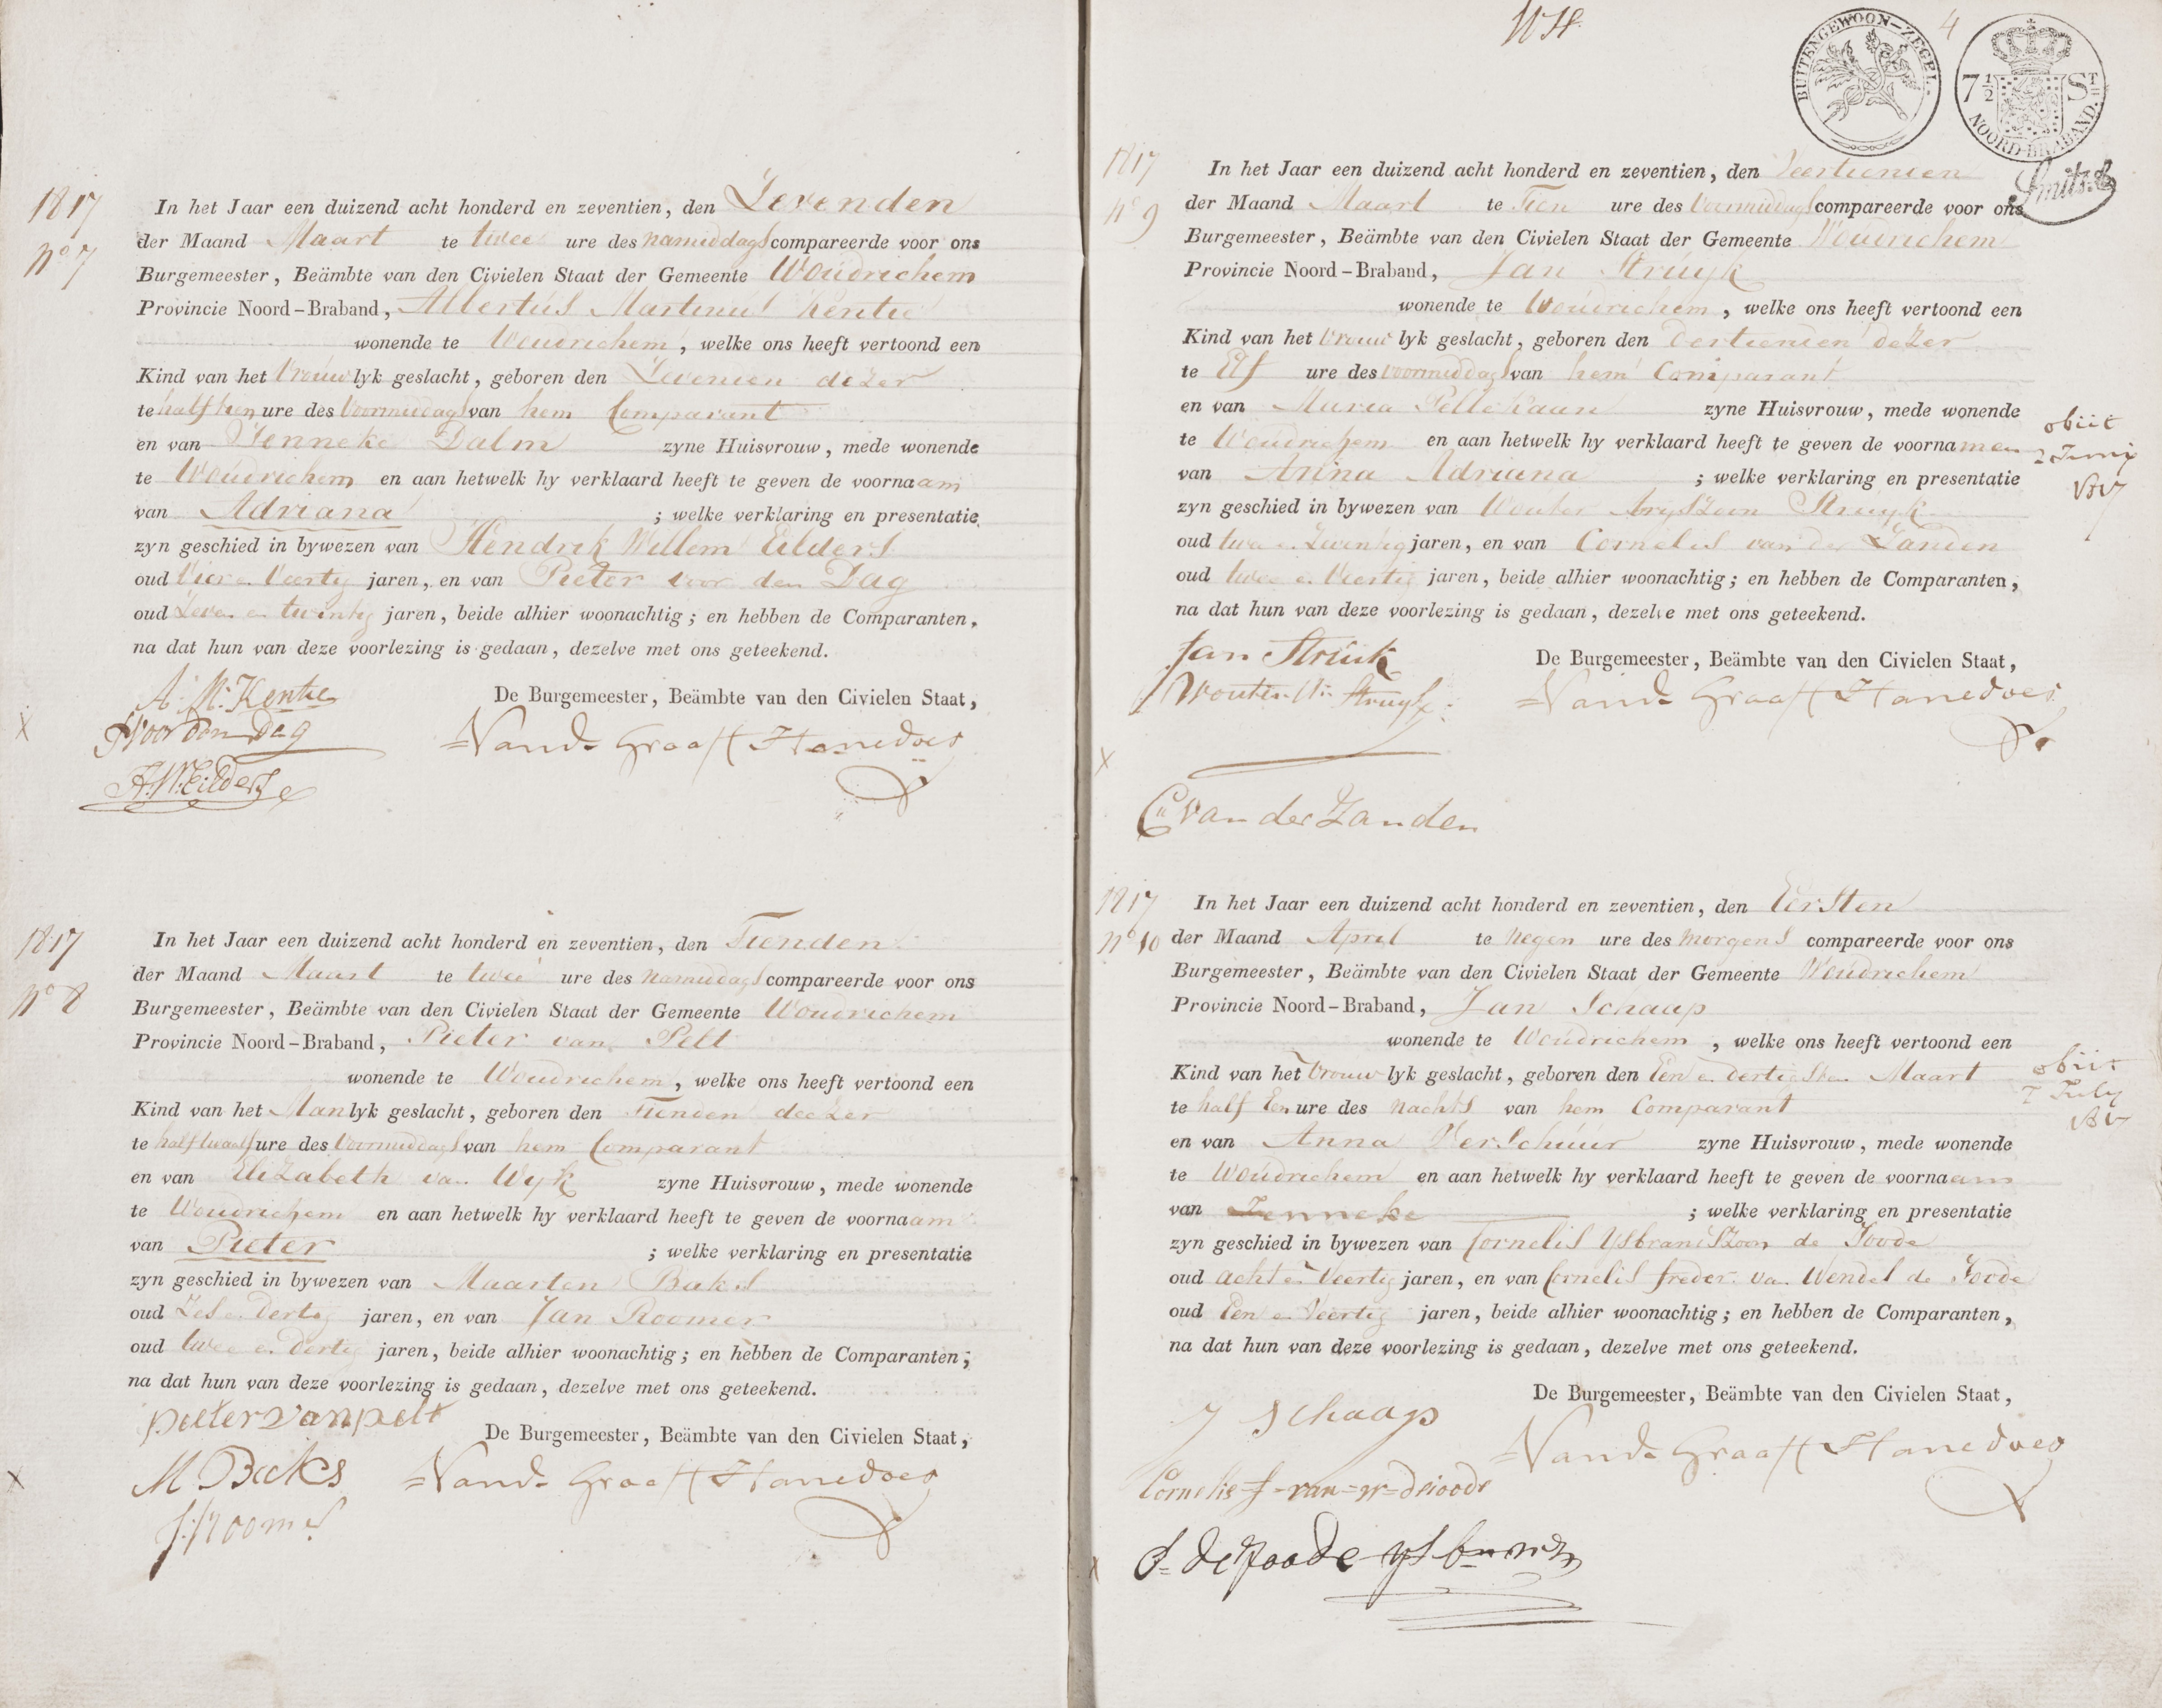 1817
No 7
In het Jaar een duizend acht honderd en zeventien, den Zevenden
der Maand Maart te twee ure des namiddags compareerde voor ons
Burgemeester, Beämbte van den Civielen Staat der Gemeente Woudrichem
Provincie Noord-Braband, Albertus Martinus Kentie
wonende te Woudrichem, welke ons heeft vertoond een
Kind van het Vrouwlyk geslacht, geboren den Zevenden dezer
te half tien ure des Voormiddags van hem Comparant
en van Jenneke Dalm zyne Huisvrouw, mede wonende
te Woudrichem en aan hetwelk hy verklaard heeft te geven de voornaam
van Adriana ; welke verklaring en presentatie
zyn geschied in bywezen van Hendrik Willem Eilders
oud Vier en Veertig jaren, en van Pieter voor den Dag
oud Zeven en twintig jaren, beide alhier woonachtig; en hebben de Comparanten,
na dat hun van deze voorlezing is gedaan, dezelve met ons geteekend.
A. M. Kentie
De Burgemeester, Beämbte van den Civielen Staat,
P voor den Dag
Vand Graaff Hanedoes
H. W. Eilders
1817
No 8
In het Jaar een duizend acht honderd en zeventien, den Tienden
der Maand Maart te twee ure des namiddags compareerde voor ons
Burgemeester, Beämbte van den Civielen Staat der Gemeente Woudrichem
Provincie Noord-Braband, Pieter van Pelt
wonende te Woudrichem, welke ons heeft vertoond een
Kind van het Manlyk geslacht, geboren den Tienden deezer
te half twaalf ure des Voormiddags van hem Comparant
en van Elizabeth van Wyk zyne Huisvrouw, mede wonende
te Woudrichem en aan hetwelk hy verklaard heeft te geven de voornaam
van Pieter ; welke verklaring en presentatie
zyn geschied in bywezen van Maarten Baks
oud Zes en dertig jaren, en van Jan Roomer
oud twee en dertig jaren, beide alhier woonachtig; en hebben de Comparanten,
na dat hun van deze voorlezing is gedaan, dezelve met ons geteekend.
pieter van pelt
De Burgemeester, Beämbte van den Civielen Staat,
M Baks
Vand Graaff Hanedoes
WH.
4
BUITENGEWOON-ZEGEL.
7 1/2 ST
NOORD-BRABAND.
Smits
1817
No 9
In het Jaar een duizend acht honderd en zeventien, den Veertienden
der Maand Maart te Tien ure des Voormiddags compareerde voor ons
Burgemeester, Beämbte van den Civielen Staat der Gemeente Woudrichem
Provincie Noord-Braband, Jan Struyk
wonende te Woudrichem, welke ons heeft vertoond een
Kind van het Vrouwlyk geslacht, geboren den dertienden dezer
te Elf ure des voormiddags van hem Comparant
en van Maria Pellekaan zyne Huisvrouw, mede wonende
te Woudrichem en aan hetwelk hy verklaard heeft te geven de voornamen
van Anna Adriana ; welke verklaring en presentatie
zyn geschied in bywezen van Wouter Aryszoon Struyk
oud twee en Zeventig jaren, en van Cornelis van der Zanden
oud twee en Veertig jaren, beide alhier woonachtig; en hebben de Comparanten,
na dat hun van deze voorlezing is gedaan, dezelve met ons geteekend.
obiit
2 Juny
Jan Struik
De Burgemeester, Beämbte van den Civielen Staat,
Wouter Struyk
Vand Graaff Hanedoes
C van der Zanden
1817
No 10
In het Jaar een duizend acht honderd en zeventien, den Eersten
der Maand April te negen ure des morgens compareerde voor ons
Burgemeester, Beämbte van den Civielen Staat der Gemeente Woudrichem
Provincie Noord-Braband, Jan Schaap
wonende te Woudrichem, welke ons heeft vertoond een
Kind van het Vrouwlyk geslacht, geboren den Een en dertigsten Maart
te half Een ure des nachts van hem Comparant
en van Anna Verschuur zyne Huisvrouw, mede wonende
te Woudrichem en aan hetwelk hy verklaard heeft te geven de voornaam
van Jenneke ; welke verklaring en presentatie
zyn geschied in bywezen van Cornelis Ysbrandszoon de Joode
oud acht en Veertig jaren, en van Cornelis freder. van Wendel de Joode
oud Een en Veertig jaren, beide alhier woonachtig; en hebben de Comparanten,
na dat hun van deze voorlezing is gedaan, dezelve met ons geteekend.
obiit
7 July
De Burgemeester, Beämbte van den Civielen Staat,
J Schaap
Vand Graaff Hanedoes
Cornelis-f-van-w-de joode
C. de Joode